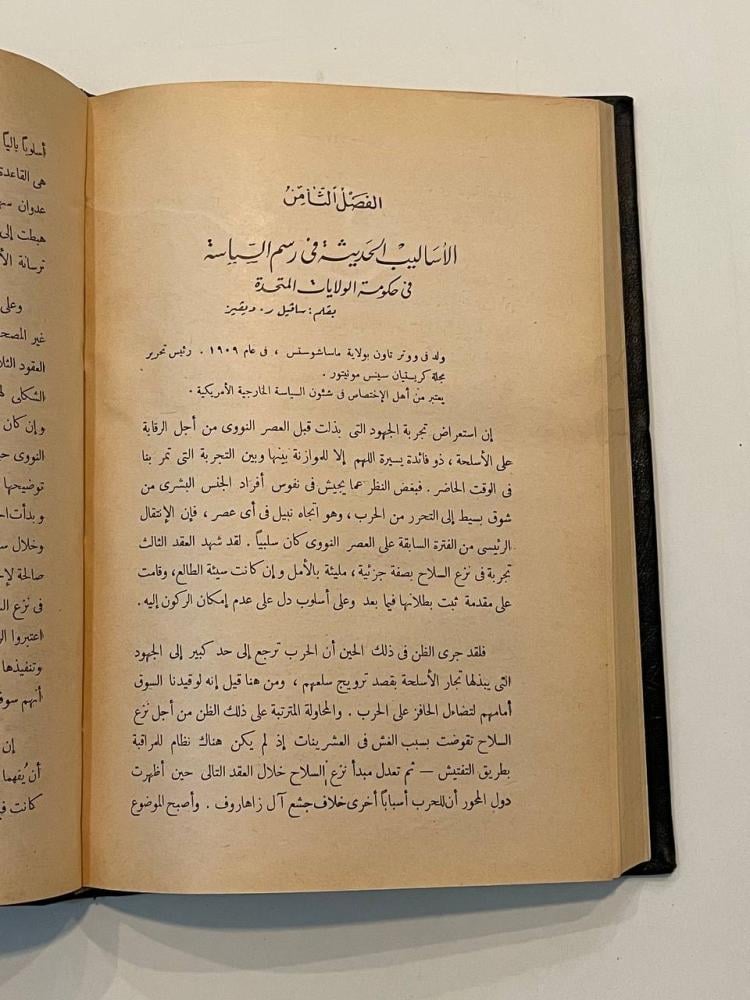 الفصل الثامن
الأساليب الحديثة فى رسم السياسة
فى حكومة الولايات المتحدة
بقلم: ساڤيل ر. ديڤيز
ولد فى ووتر تاون بولاية ماساشوستس ، فى عام ١٩٠٩ . رئيس تحرير
مجلة كريستيان سينس مونيتور .
يعتبر من أهل الإختصاص فى شئون السياسة الخارجية الأمريكية .
إن استعراض تجربة الجهود التى بذلت قبل العصر النووى من أجل الرقابة
على الأسلحة ، ذو فائدة يسيرة اللهم إلا للموازنة بينها وبين التجربة التى تمر بنا
فى الوقت الحاضر . فبغض النظر عما يجيش فى نفوس أفراد الجنس البشرى من
شوق بسيط إلى التحرر من الحرب ، وهو اتجاه نبيل فى أى عصر ، فإن الإنتقال
الرئيسى من الفترة السابقة على العصر النووى كان سلبياً . لقد شهد العقد الثالث
تجربة فى نزع السلاح بصفة جزئية ، مليئة بالأمل وإن كانت سيئة الطالع، وقامت
على مقدمة ثبت بطلانها فيما بعد وعلى أسلوب دل على عدم إمكان الركون إليه .
فلقد جرى الظن فى ذلك الحين أن الحرب ترجع إلى حد كبير إلى الجهود
التى يبذلها تجار الأسلحة بقصد ترويج سلعهم ، ومن هنا قيل إنه لو قيدنا السوق
أمامهم لتضاءل الحافز على الحرب . والمحاولة المترتبة على ذلك الظن من أجل نزع
السلاح تقوضت بسبب الغش فى العشرينات إذ لم يكن هناك نظام للمراقبة
بطريق التفتيش — ثم تعدل مبدأ نزع السلاح خلال العقد التالى حين أظهرت
دول المحور أن للحرب أسباباً أخرى خلاف جشع آل زاهاروف . وأصبح الموضوع
أسلوباً بالياً
هى القاعدة
عدوان
هبطت إلى
ترسانة
وعلى
غير
العقود
الشكلى
وإن كان
النووى
توضيحها
وبدأت
وخلال
صالحة
فى نزع
اعتبروا
وتنفيذها
أنهم
إن
أن يُفهما
كانت